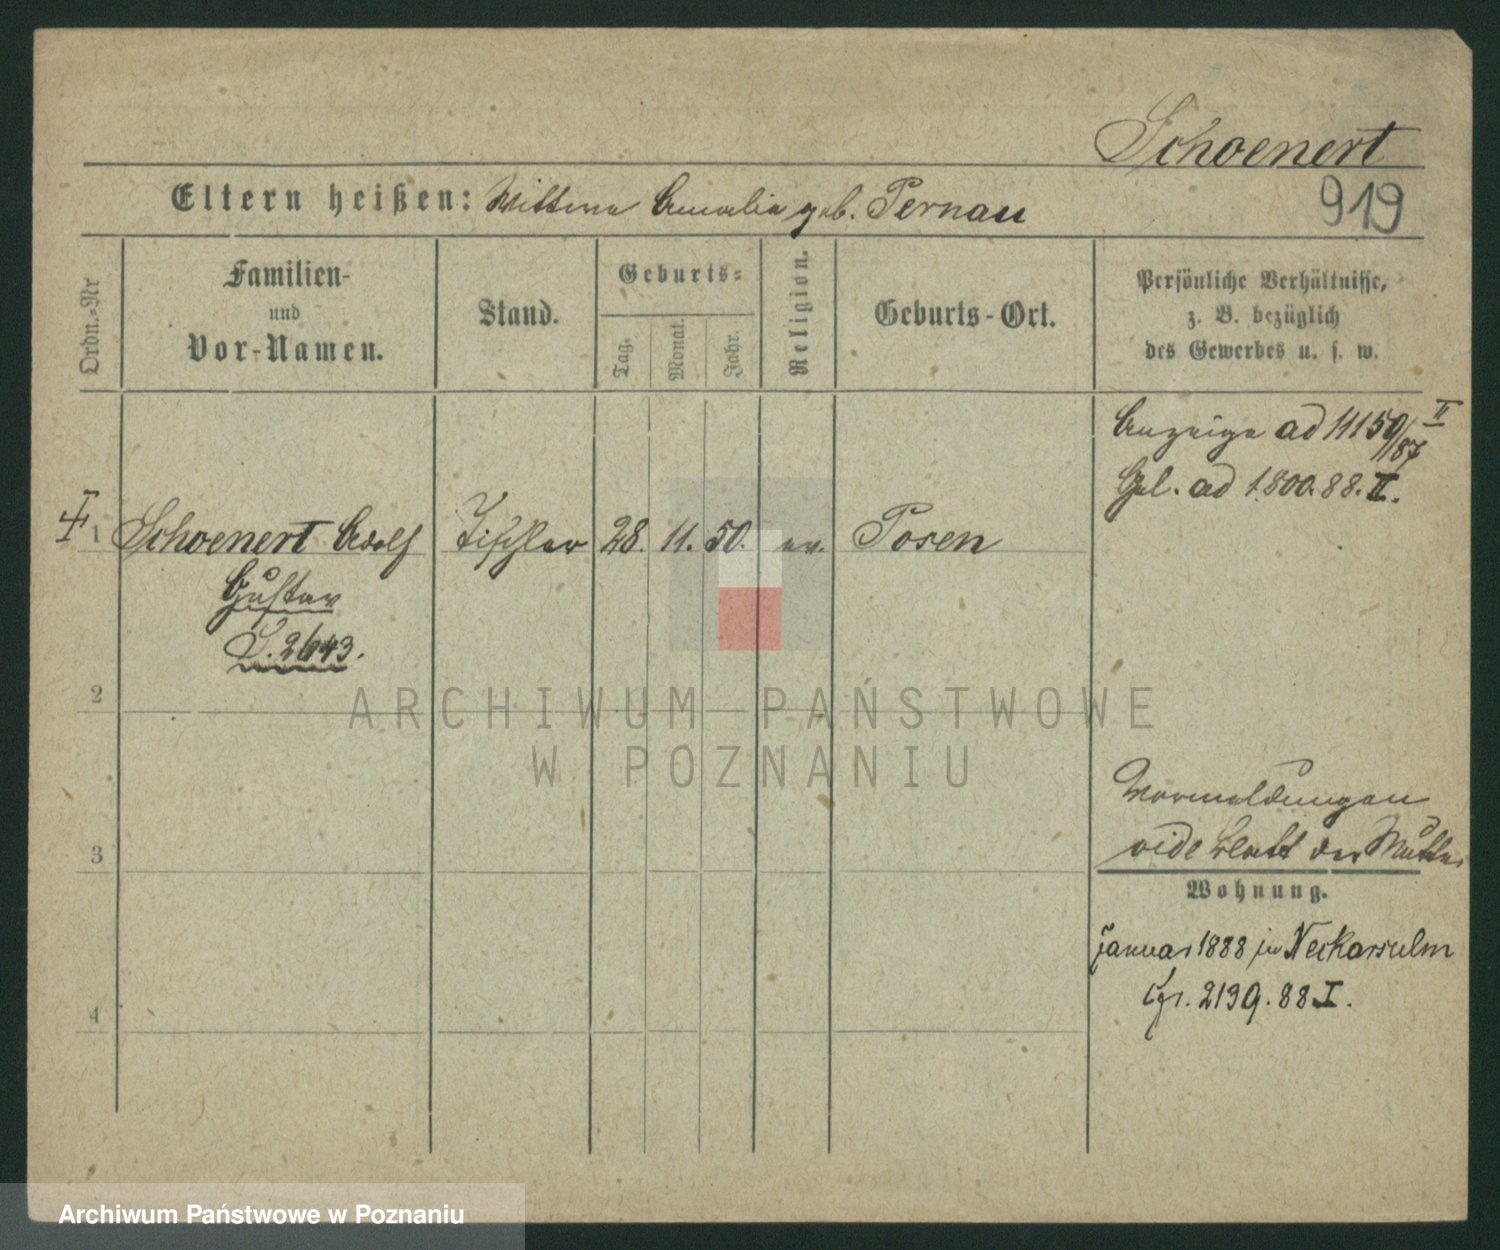 Schoenert
Eltern heißen: Wittwe Amalia geb. Pernau
919
Ordn.-Nr
Familien-
und
Vor-Namen.
Stand.
Geburts-
Tag.
Monat.
Jahr.
Religion.
Geburts-Ort.
Persönliche Verhältnisse,
z. B. bezüglich
des Gewerbes u. s. w.
Anzeige ad 11150/87 II
Gel. ad 1800.88.II.
1 Schoenert Adolf Tischler 28. 11. 50. ev. Posen
Gustav
S. 2643.
2
ARCHIWUM PAŃSTWOWE
W POZNANIU
Vormeldungen
vide Blatt der Mutter
3
Wohnung.
Januar 1888 in Neckarsulm
2139.88 I.
4
Archiwum Państwowe w Poznaniu